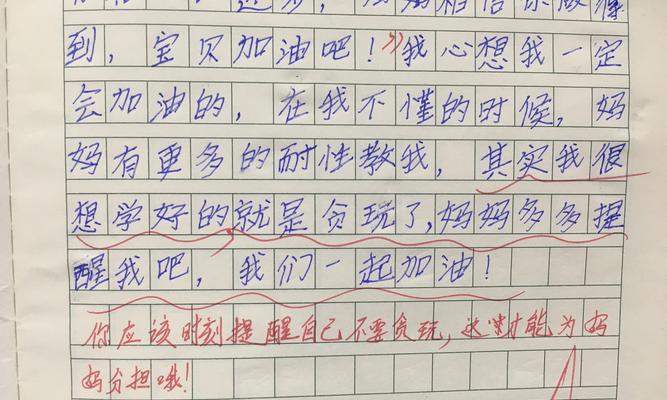 相信你做得
到，宝贝加油吧！”我心想我一定
会加油的，在我不懂的时候，妈
妈有更多的耐性教我，其实我很
想学好的就是贪玩了，妈妈多多提
醒我吧，我们一起加油！
你应该时刻提醒自己不要贪玩，这样才能为妈
妈分担哦！